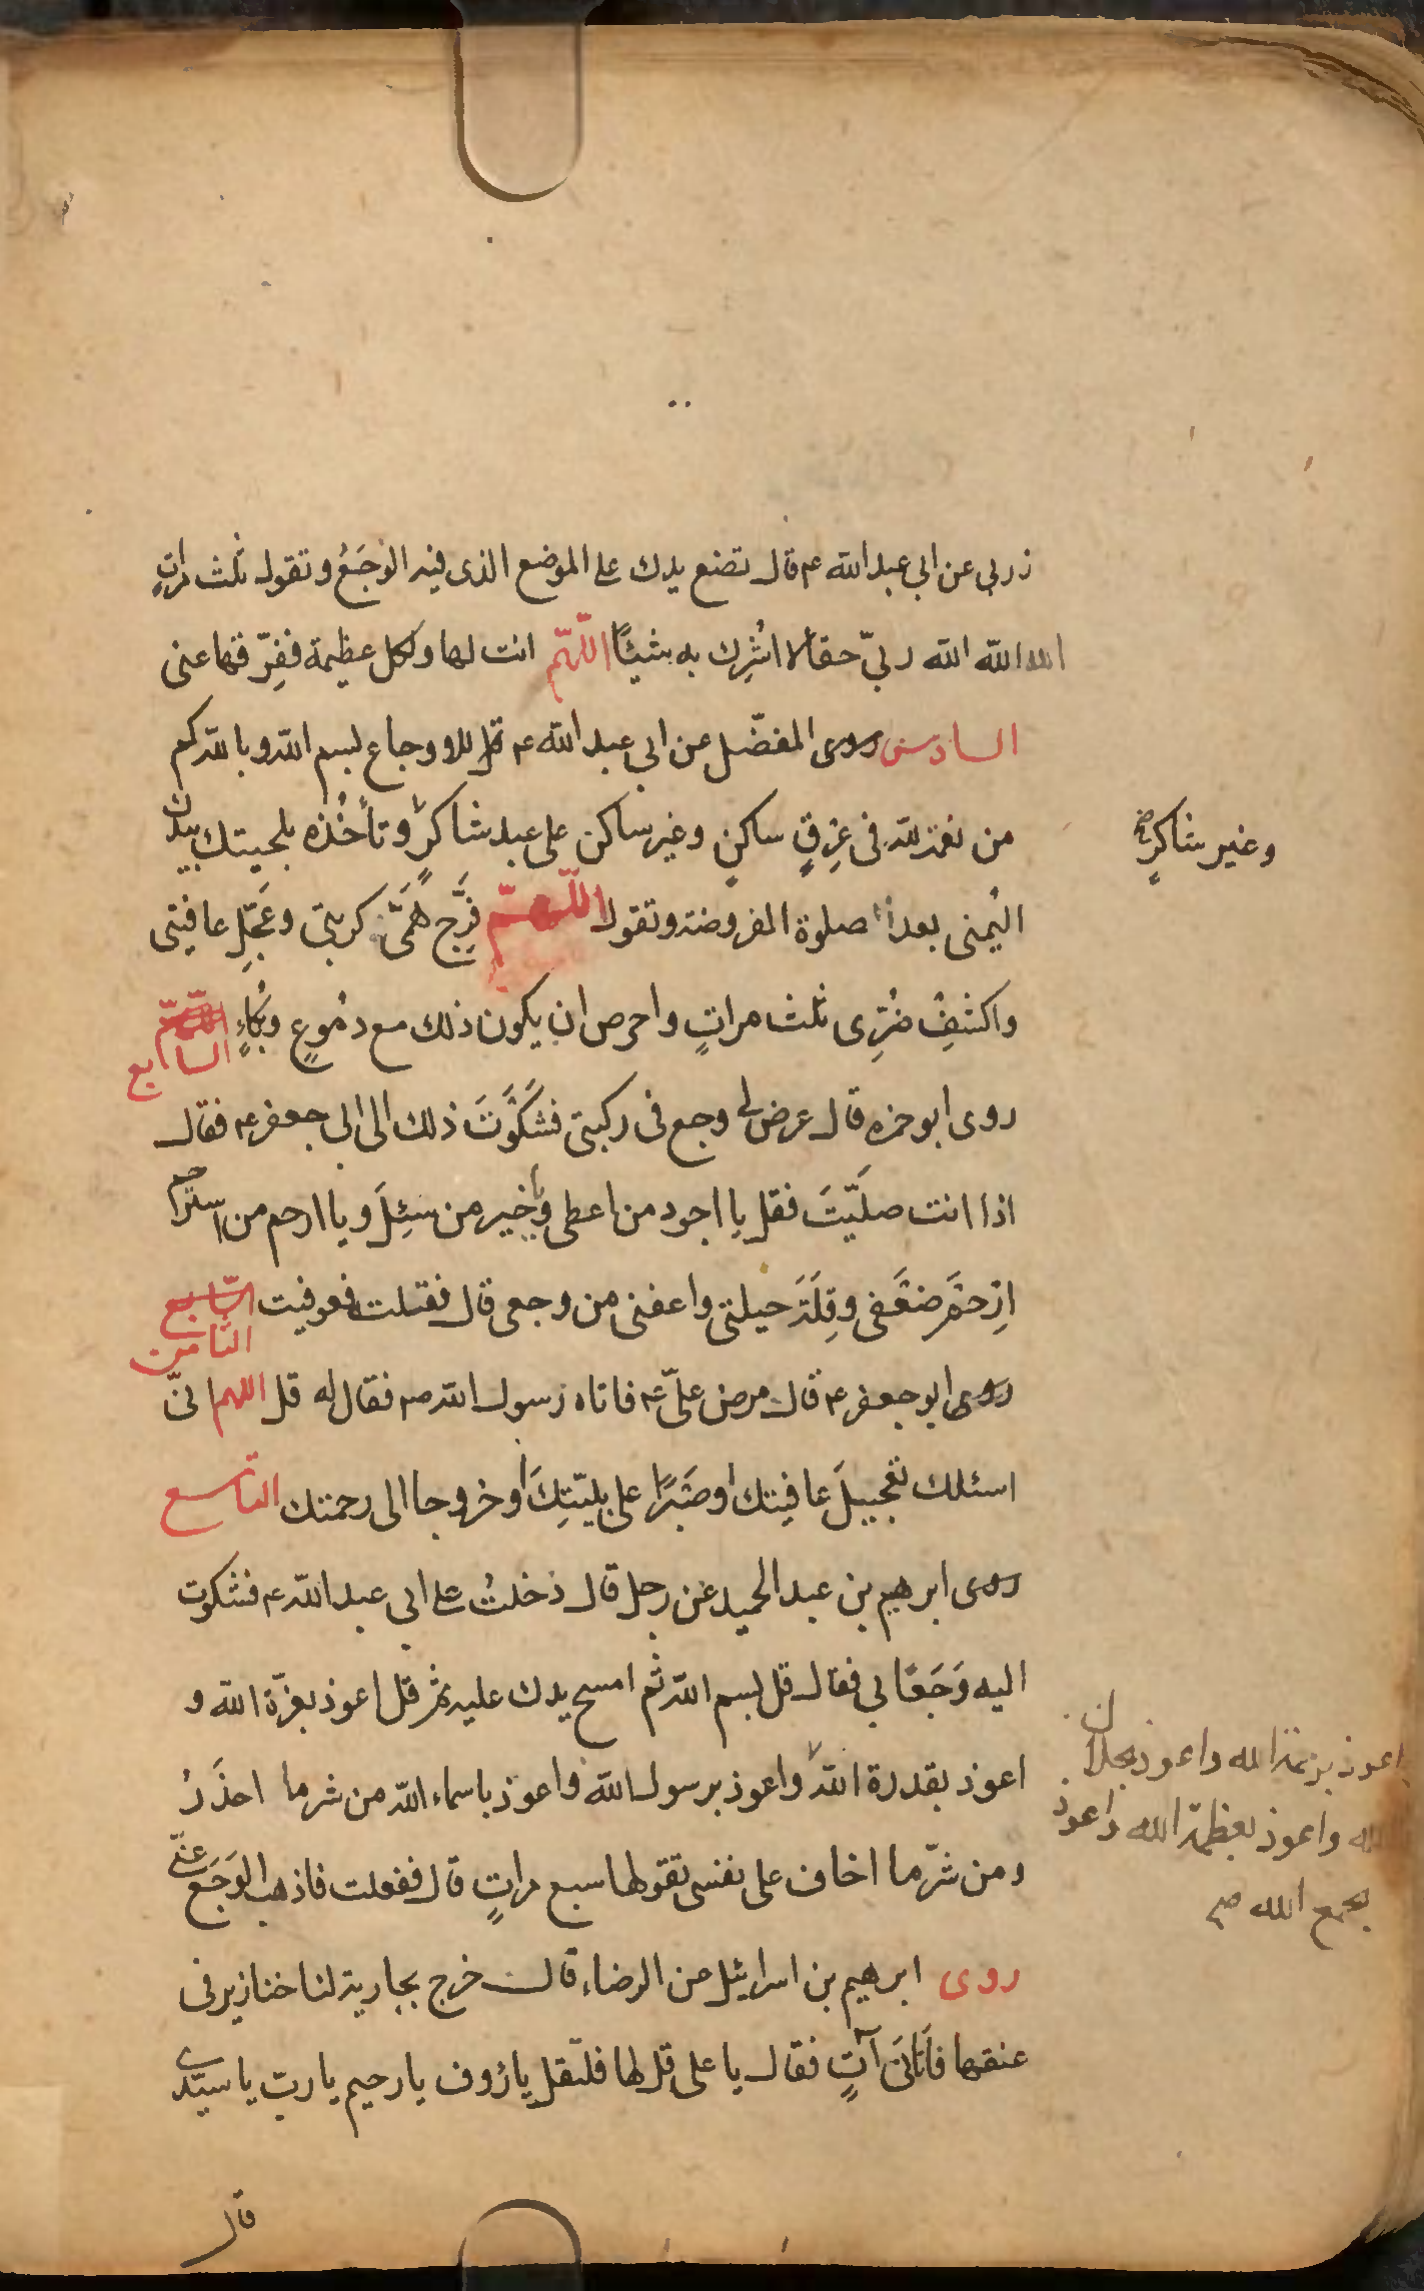 ذربي عن ابي عبد الله ع قال تضع يدك على الموضع الذى فيه الوَجَعُ وتقول ثلث مراتٍ
الله الله الله ربيّ حقا لا اُشرِك به شيئًا اللّهمّ انت لها ولكل عظيمة ففرّقها عنى
السادس روى المفضّل عن ابى عبد الله ع قل للاوجاع بسم الله وبالله كم
من نعمة لله فى عِرقٍ ساكنٍ وغير ساكن على عبد شاكرٍ وتأخُذه بلحيتك بيدك
وغير شاكرٍ صح
اليُمنى بعد الصلوة المفروضة وتقول اللّهمّ فَرَّج هَمّىَ كربتى وعَجِّل عافيتى
واكشِف ضُرّى ثلث مراتٍ واحرص ان يكون ذلك مع دمُوعٍ وبُكاءٍ اللّهمّ
السابع
روى ابو حمزه قال عرض لى وجع فى ركبتى فشكَوتَ ذلك الى ابى جعفر ع فقال
اذا انت صلَيّتَ فقل يا اجود من اعطى ويا خير من سُئِلَ ويا ارحم من استرحم
اِرْحَمْ ضعَفى وقِلّةَ حيلتى واعفنى من وجعى قال ففعلته فعوفيت السّابع
الثامن
روى ابو جعفر ع قال مرض علىّ ع فاتاه رسول الله ص فقال له قل اللهم انىّ
اسئلك تعجيلَ عافيتك او صَبرًا على بليّتِكَ او خروجا الى رحمتك التاسع
روى ابرهيم بن عبد الحميد عن رجل قال دخلتُ على ابى عبد الله ع فشكوت
اليه وَجَعًا بى فقال قل بسم الله ثم امسح يدك عليه ثم قل اعوذ بعزّة الله و
اعوذ بقدرة الله واعوذ برسول الله واعوذ باسماء الله من شر ما احذَرُ
اعوذ برحمة الله واعوذ بجلال
الله واعوذ بعظمة الله واعوذ
بجمع الله صح
ومن شرّ ما اخاف على نفسى تقولها سبع مراتٍ قال ففعلت فاذهب الوَجَعَ عنّى
روى ابرهيم بن اسرائيل عن الرضاء قال خرج بجارية لنا خنازير فى
عنقها فأتانىَ آتٍ فقال يا على قل لها فلتقل يا رؤف يا رحيم يا ربّ يا سيّدى
قال